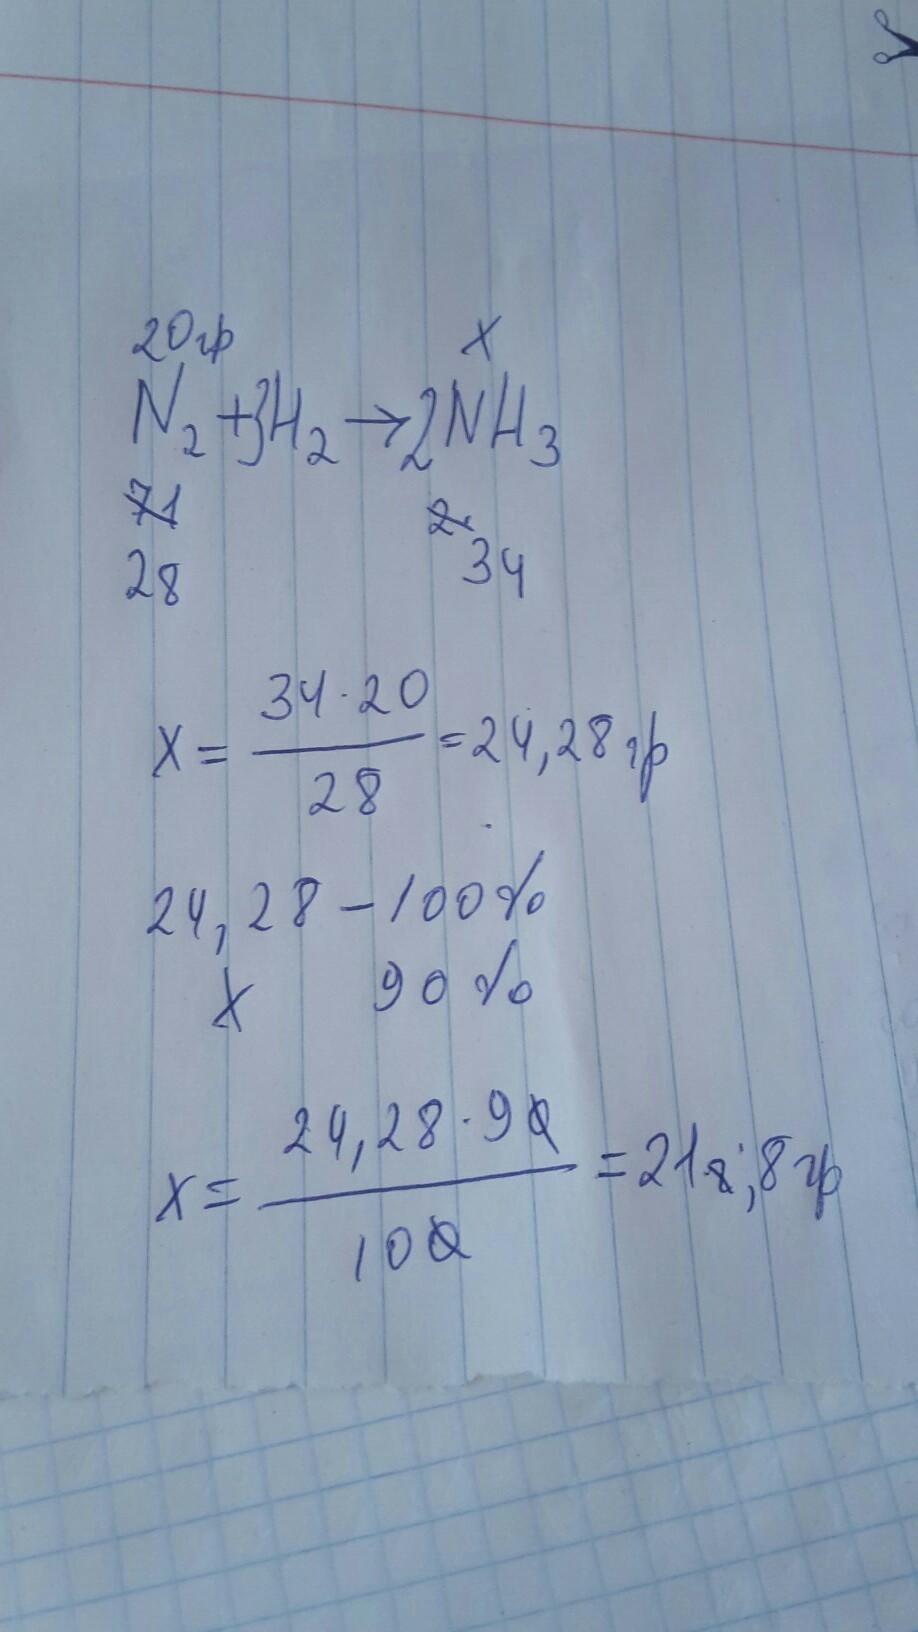 20гр x
N₂ + 3H₂ → 2NH₃
28 34
x = 34·20/28 = 24,28 гр
24,28 – 100%
x 90%
x = 24,28·90/100 = 21,8 гр